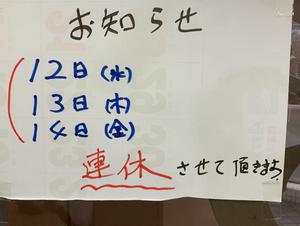 お知らせ
12日(水)
13日(木)
14日(金)
連休させて頂きます